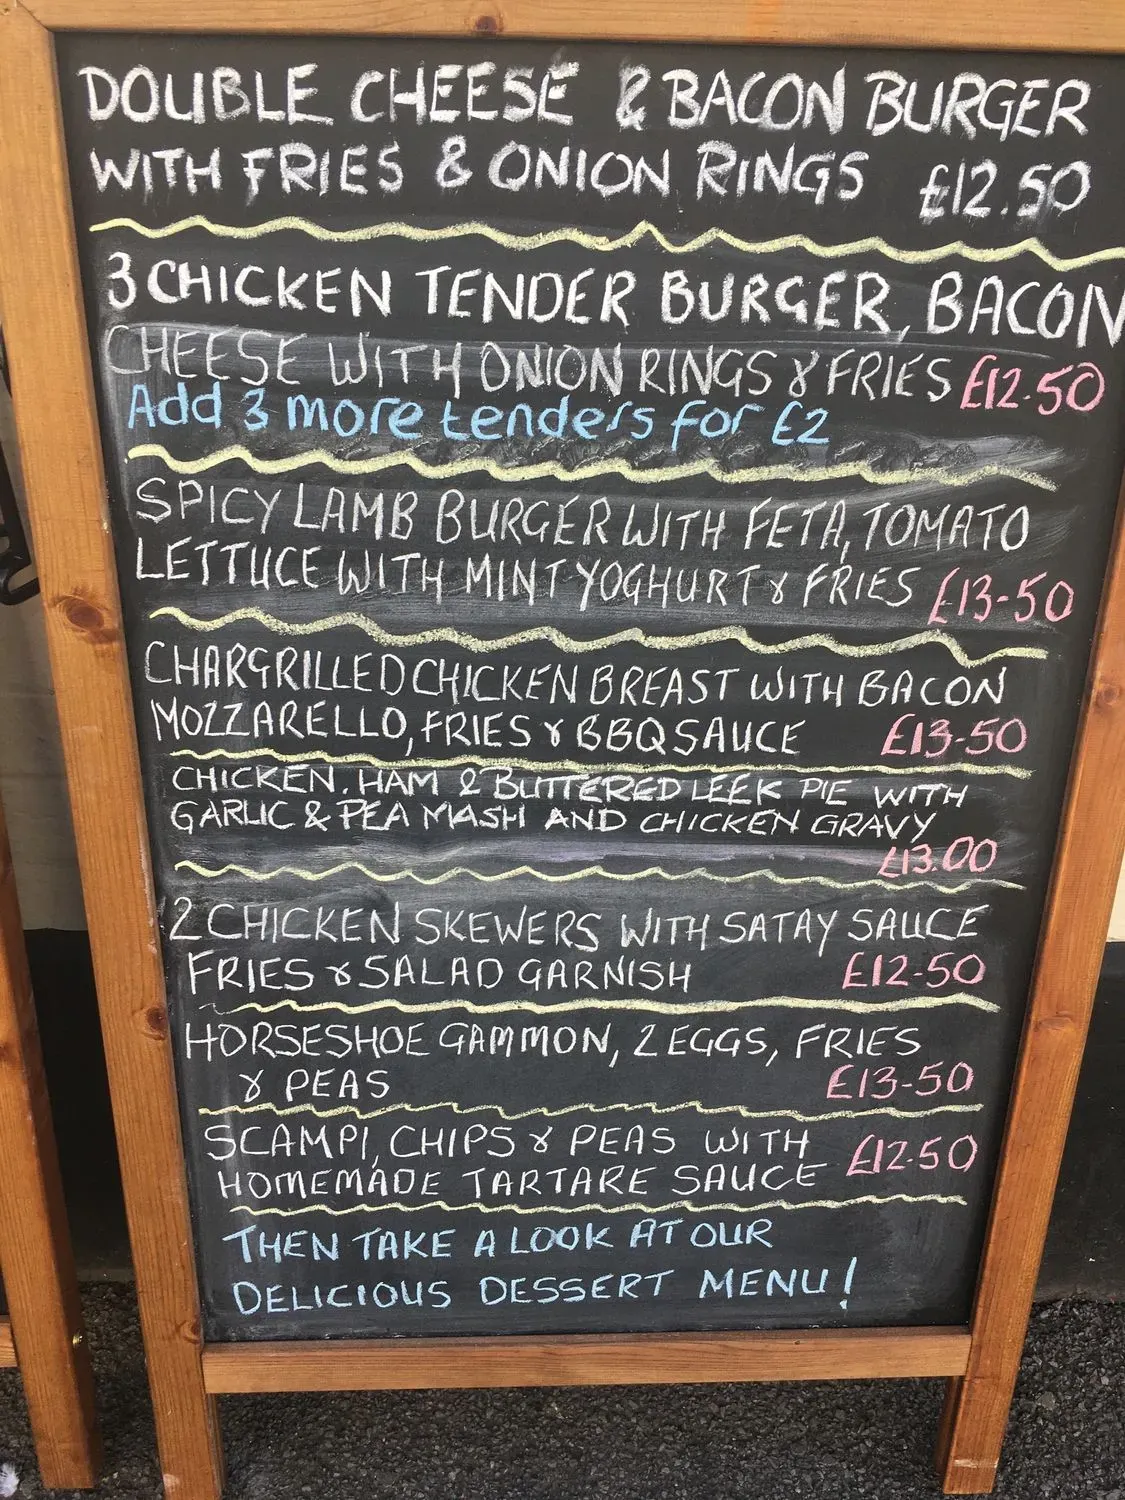 DOUBLE CHEESE & BACON BURGER
WITH FRIES & ONION RINGS £12.50
3 CHICKEN TENDER BURGER, BACON
CHEESE WITH ONION RINGS & FRIES £12.50
Add 3 more tenders for £2
SPICY LAMB BURGER WITH FETA, TOMATO
LETTUCE WITH MINT YOGHURT & FRIES £13-50
CHARGRILLED CHICKEN BREAST WITH BACON
MOZZARELLO, FRIES & BBQ SAUCE £13-50
CHICKEN, HAM & BUTTERED LEEK PIE WITH
GARLIC & PEA MASH AND CHICKEN GRAVY
£13.00
2 CHICKEN SKEWERS WITH SATAY SAUCE
FRIES & SALAD GARNISH £12-50
HORSESHOE GAMMON, 2 EGGS, FRIES
& PEAS £13-50
SCAMPI, CHIPS & PEAS WITH £12-50
HOMEMADE TARTARE SAUCE
THEN TAKE A LOOK AT OUR
DELICIOUS DESSERT MENU!